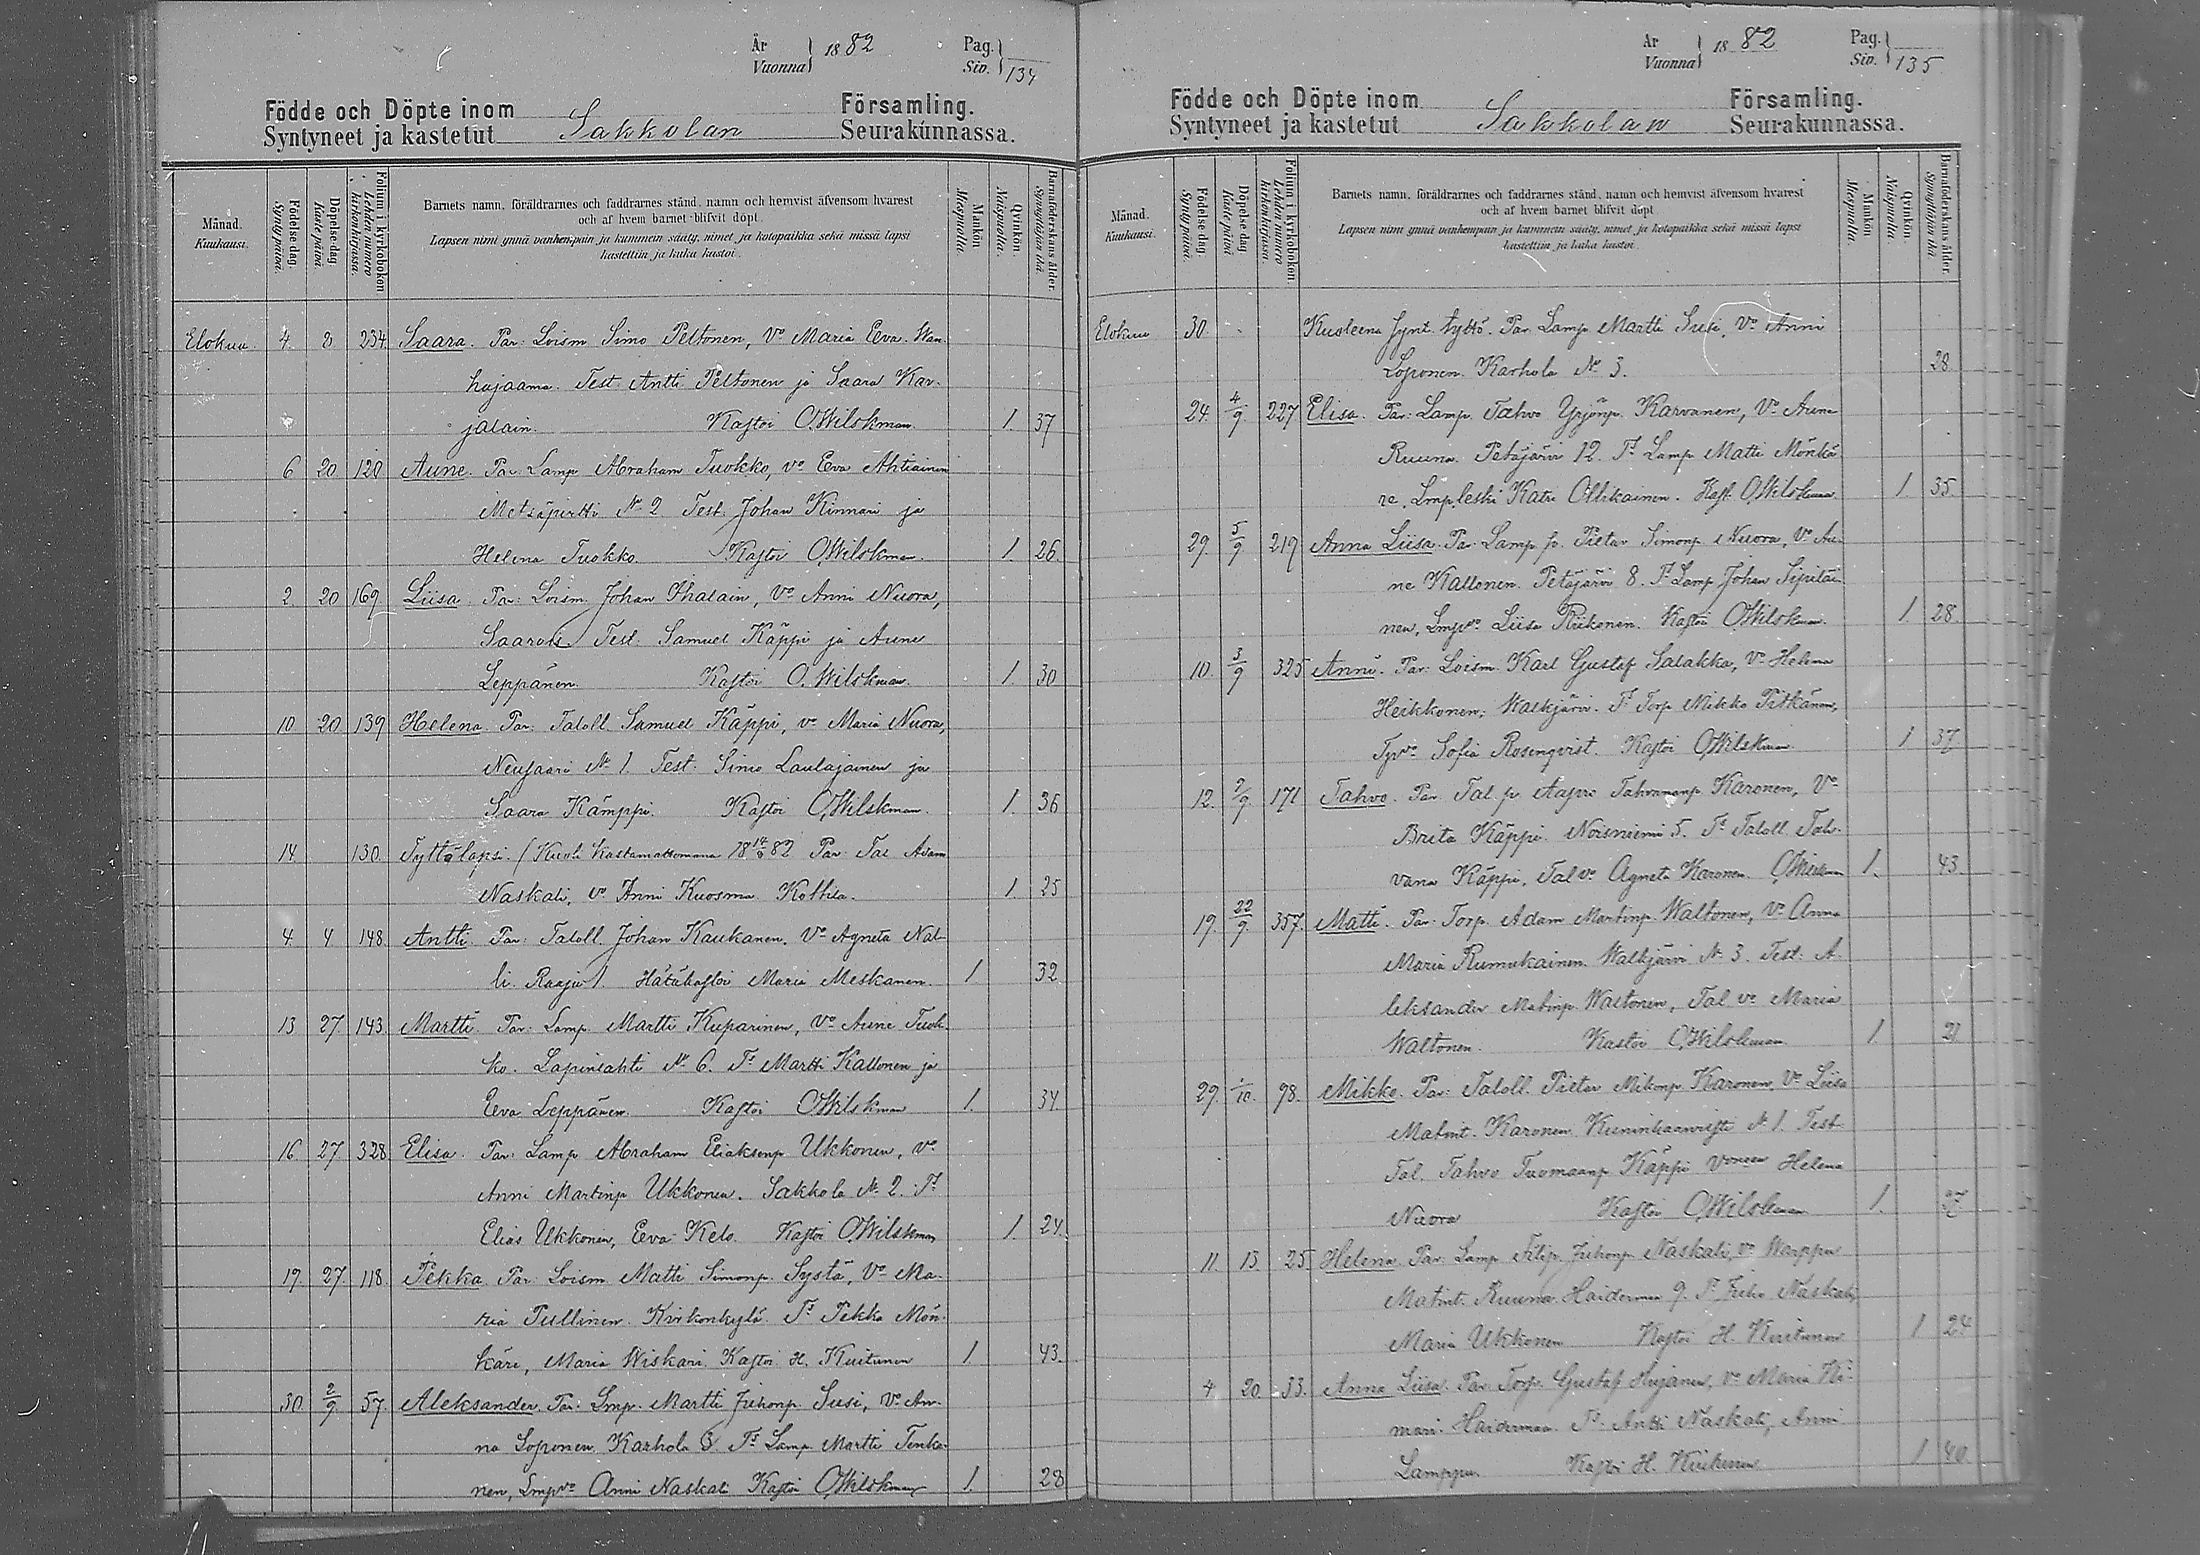 År
Vuonna } 1882
Pag.
Siv. } 134
Födde och Döpte inom
Syntyneet ja kastetut Sakkolan Församling.
Seurakunnassa.
Månad.
Kuukausi.
Födelse dag.
Syntymäpäivä.
Döpelse dag.
Kaste päivä.
Folium i kyrkoboken
Lehden numero
kirkonkirjassa.
Barnets namn, föräldrarnes och faddrarnes stånd, namn och hemvist äfvensom hvarest
och af hvem barnet blifvit döpt.
Lapsen nimi ynnä vanhempain ja kummein sääty, nimet ja kotopaikka sekä missä lapsi
kastettiin ja kuka kastoi.
Mankön.
Miespuolia.
Qvinkön.
Naispuolia.
Barnaföderskans ålder.
Synnyttäjän ikä.
Elokuu. 4. 8 234 Saara. Par: Loism Simo Peltonen, Vo Maria Eva Wan
hajaama. Test. Antti Peltonen ja Saara Kar-
jalain. Kastoi O.Wilskman. 1. 37
6 20 120 Aune. Par: Lamp. Abraham Tuokko, vo Eva Ahtiainen
Metsäpirtti No 2 Test. Johan Kinnari ja
Helena Tuokko. Kastoi O.Wilskman. 1. 26.
2. 20 169 Liisa. Par: Loism. Johan Ihalain, Vo Anni Nuora,
Test. Samuel Käppi ja Aune
Leppänen. Kastoi O. Wilskman. 1. 30
10 20 139 Helena. Par: Taloll. Samuel Käppi, vo Maria Nuora,
No 1. Test. Simo Laulajainen ja
Saara Kämppi. Kastoi O.Wilskman. 1. 36
14 130. Tyttölapsi. (Kuoli kastamattomana 18 14/8 82 Par Tal Adam
Naskali, vo Anni Kuosma. Kottila. 1. 25
4. 4 148. Antti Par: Taloll. Johan Kaukanen. Vo Agneta Nal-
li. Raaju 1. Hätäkastoi Maria Meskanen. 1. 32
13 27. 143. Martti. Par: Lamp. Martti Kuparinen, Vo Aune Tuok
ko. Lapinlahti No 6. Ts Martti Kallonen ja
Eeva Leppänen. Kastoi O.Wilskman 1. 34.
16. 27 328 Elisa. Par: Lamp Abraham Eliaksenp Ukkonen, vo
Anni Martinp Ukkonen. Sakkola No 2. Ts
Elias Ukkonen, Eeva Kelo. Kastoi O.Wilskman 1. 24.
19. 27. 118. Pekka. Par: Loism. Matti Simonp. Systä, Vo Ma-
ria Pullinen Kirkonkylä. Ts Pekka Mön-
käre, Maria Wiskari. Kastoi H. Kuitunen 1. 43.
30. 2/9. 57. Aleksander. Par: Lmp. Martti Juhonp. Susi, Vo An-
na Loponen. Karhola 3. Ts Lamp Martti Tenka-
nen, Lmpvo Anni Naskali Kastoi O.Wilskman 1. 28
År
Vuonna } 1882
Pag.
Siv. } 135
Födde och Döpte inom
Syntyneet ja kastetut Sakkolan Församling.
Seurakunnassa.
Månad.
Kuukausi.
Födelse dag.
Syntymäpäivä.
Döpelse dag.
Kaste päivä.
Folium i kyrkoboken
Lehden numero
kirkonkirjassa.
Barnets namn, föräldrarnes och faddrarnes stånd, namn och hemvist äfvensom hvarest
och af hvem barnet blifvit döpt.
Lapsen nimi ynnä vanhempain ja kummein sääty, nimet ja kotopaikka sekä missä lapsi
kastettiin ja kuka kastoi.
Mankön
Miespuolia.
Qvinkön.
Naispuolia.
Barnaföderskans ålder.
Synnyttäjän ikä
Elokuu 30. Kuoleena synt. tyttö. Par. Lamp Martti Susi, Vo Anni
Loponen. Karhola No 3. 28
24. 4/9. 227 Elisa. Par: Lamp. Tahvo Yrjönp. Karvanen, Vo Aune
Ruuna. Petäjärvi 12. Ts Lamp Matti Mönkä
re, Lmp.leski Katri Ollikainen. Kast. O.Wilskman 1 35
29. 5/9 219 Anna Liisa. Par. Lamp. p. Pietar Simonp. Nuora, Vo Au-
ne Kallonen. Petäjärvi 8. Ts Lamp. Johan Sipiläi
nen, Lmpvo Liisa Riikonen. Kastoi O.Wilskman. 1 28.
10. 3/9 325 Anni. Par: Loism. Karl Gustaf Salakka, Vo Helena
Heikkonen, Walkjärvi. Ts Torp Mikko Pitkänen,
Tpvo Sofia Rosenqvist. Kastoi O.Wilskman 1 37
12. 171 Tahvo. Par. Tal. p. Aapro Tahvananp Karonen, Vo
Brita Käppi. Noisniemi 5. Ts Taloll. Tah-
vana Käppi, Tal vo Agneta Karonen. O.Wilskman 1. 43.
19. 22/9. 357. Matti. Par: Torp. Adam Martinp. Waltonen, Vo Anna
Maria Rumukainen Walkjärvi No 3. Test. A-
leksander Matinp. Waltonen, Tal vo Maria
Waltonen. Kastoi O.Wilskman 1. 21
29. 1/10. 98. Mikko. Par: Taloll. Pietar Mikonp. Karonen, Vo Liisa
Matint. Karonen. No 1. Test
Tal. Tahvo Tuomaanp Käppi Helena
Nuora Kastoi O.Wilskman 1. 37
11. 13. 25 Helena. Par. Lamp Filip Juhonp. Naskali, vo Warppu
Matint. Ruuna. Haiderman 9. Ts Juho Naskali,
Maria Ukkonen Kastoi H. Kuitunen 1 24
4 20. 33. Anna Liisa. Par. Torp. Gustaf vo Maria
Haiderman Ts Antti Naskali, Anni
Lamppu. Kastoi H. Kuitunen 1 40